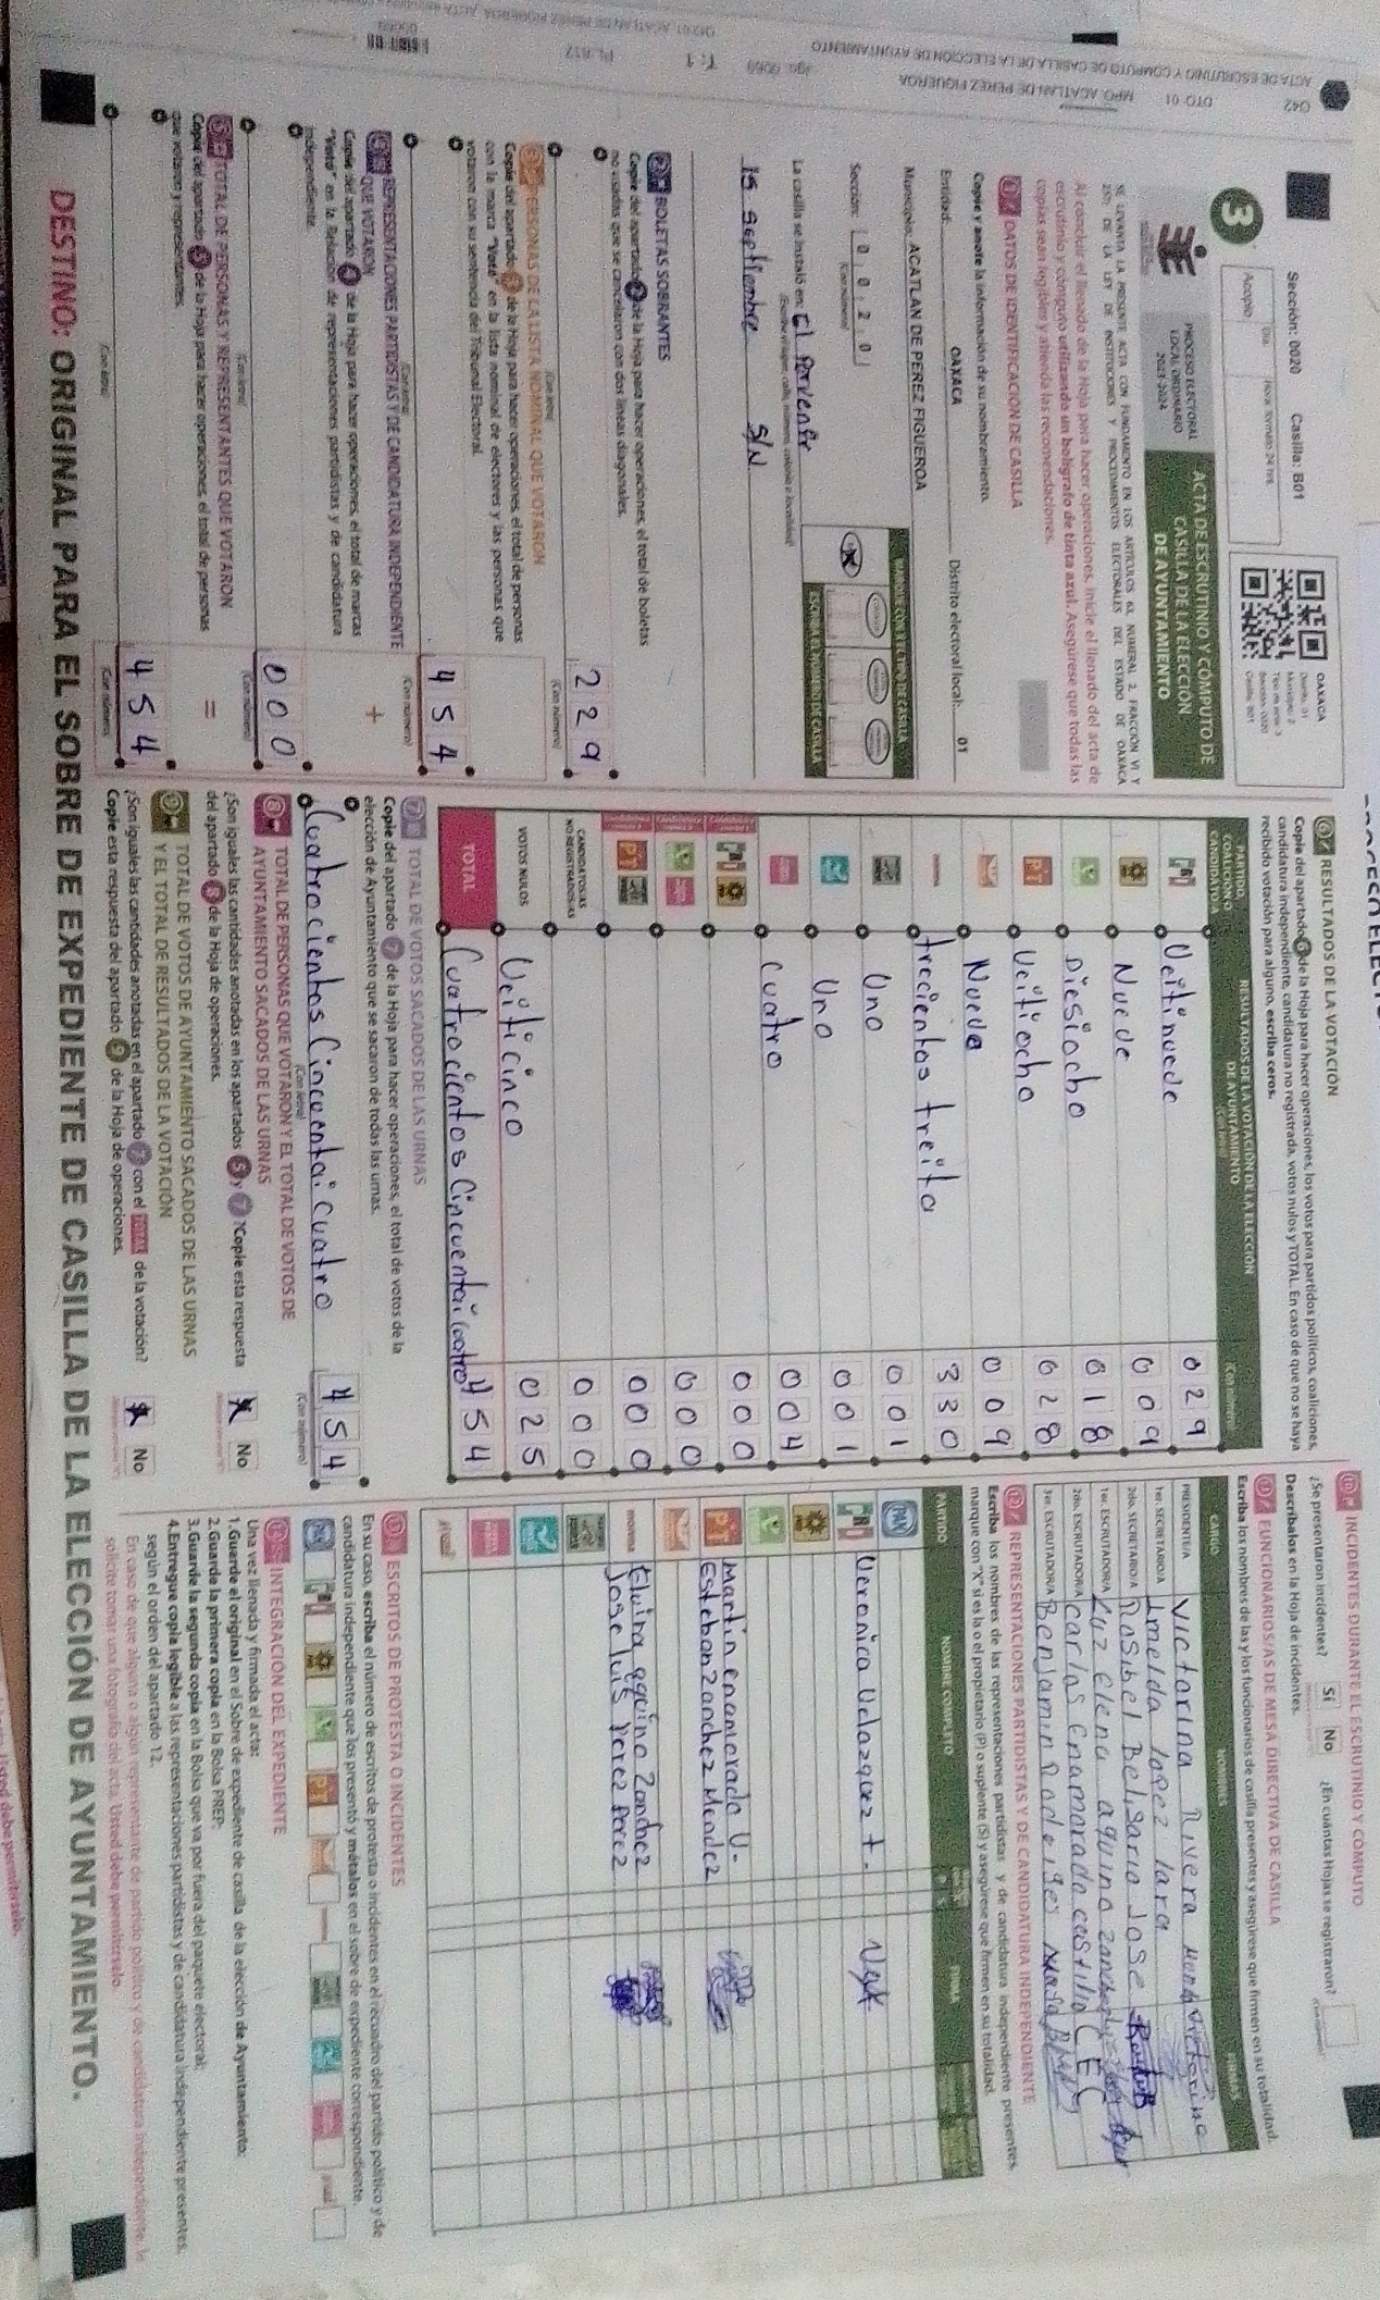 Sección: 0020 Casilla: B01
OAXACA
3
Acopio
PROCESO ELECTORAL
LOCAL ORDINARIO
2023-2024
ACTA DE ESCRUTINIO Y CÓMPUTO DE
CASILLA DE LA ELECCIÓN
DE AYUNTAMIENTO
SE LEVANTA LA PRESENTE ACTA CON FUNDAMENTO EN LOS ARTÍCULOS 63, NUMERAL 2, FRACCIÓN VI Y
Al concluir el llenado de la Hoja para hacer operaciones, inicie el llenado del acta de
escrutinio y cómputo utilizando un bolígrafo de tinta azul. Asegúrese que todas las
copias sean legibles y atienda las recomendaciones.
1 DATOS DE IDENTIFICACIÓN DE CASILLA
Copie y anote la información de su nombramiento.
Entidad: OAXACA Distrito electoral local: 01
Municipio: ACATLAN DE PEREZ FIGUEROA
Sección: 0 0 2 0
(Con número)
MARQUE CON X EL TIPO DE CASILLA
ESCRIBA EL NÚMERO DE CASILLA
La casilla se instaló en: El Porvenir
15 septiembre S/N
2 BOLETAS SOBRANTES
Copie del apartado 2 de la Hoja para hacer operaciones, el total de boletas
no usadas que se cancelaron con dos líneas diagonales.
229
(Con número)
3 PERSONAS DE LA LISTA NOMINAL QUE VOTARON
Copie del apartado 3 de la Hoja para hacer operaciones, el total de personas
con la marca "Votó" en la lista nominal de electores y las personas que
votaron con su sentencia del Tribunal Electoral.
454
(Con número)
4 REPRESENTACIONES PARTIDISTAS Y DE CANDIDATURA INDEPENDIENTE
QUE VOTARON
Copie del apartado 4 de la Hoja para hacer operaciones, el total de marcas
"Votó" en la Relación de representaciones partidistas y de candidatura
independiente.
+
000
(Con número)
5 TOTAL DE PERSONAS Y REPRESENTANTES QUE VOTARON
Copie del apartado 5 de la Hoja para hacer operaciones, el total de personas
que votaron y representantes.
=
454
(Con número)
6 RESULTADOS DE LA VOTACIÓN
Copie del apartado 6 de la Hoja para hacer operaciones, los votos para partidos políticos, coaliciones,
candidatura independiente, candidatura no registrada, votos nulos y TOTAL. En caso de que no se haya
recibido votación para alguno, escriba ceros.
PARTIDO, COALICIÓN O CANDIDATO/A
RESULTADOS DE LA VOTACIÓN DE LA ELECCIÓN
DE AYUNTAMIENTO
PRI Veitinuede 029
PRD Nuede 009
Diesiocho 018
PT Veitiocho 028
Nuede 009
trecientos treita 330
Uno 001
Uno 001
Cuatro 004
000
000
PT 000
CANDIDATOS/AS
NO REGISTRADOS/AS 000
VOTOS NULOS Veiticinco 025
TOTAL Cuatrocientos Cincuentai cuatro 454
7 TOTAL DE VOTOS SACADOS DE LAS URNAS
Copie del apartado 7 de la Hoja para hacer operaciones, el total de votos de la
elección de Ayuntamiento que se sacaron de todas las urnas.
Cuatrocientos Cincuentai cuatro 454
(Con letra) (Con número)
8 TOTAL DE PERSONAS QUE VOTARON Y EL TOTAL DE VOTOS DE
AYUNTAMIENTO SACADOS DE LAS URNAS
¿Son iguales las cantidades anotadas en los apartados 5 y 7? Copie esta respuesta
del apartado 8 de la Hoja de operaciones. No
9 TOTAL DE VOTOS DE AYUNTAMIENTO SACADOS DE LAS URNAS
Y EL TOTAL DE RESULTADOS DE LA VOTACIÓN
¿Son iguales las cantidades anotadas en el apartado 7 con el TOTAL de la votación?
Copie esta respuesta del apartado 9 de la Hoja de operaciones. No
10 INCIDENTES DURANTE EL ESCRUTINIO Y CÓMPUTO
¿Se presentaron incidentes? Sí No ¿En cuántas Hojas se registraron?
Descríbalos en la Hoja de incidentes.
11 FUNCIONARIOS/AS DE MESA DIRECTIVA DE CASILLA
Escriba los nombres de las y los funcionarios de casilla presentes y asegúrese que firmen en su totalidad.
CARGO NOMBRES FIRMAS
PRESIDENTE/A Victorina Rivera
1er. SECRETARIO/A Imelda lopez lara
2do. SECRETARIO/A Rosibel Belisario Jose
1er. ESCRUTADOR/A Luz Elena aquino
2do. ESCRUTADOR/A carlos Enamorado castillo CEC
3er. ESCRUTADOR/A Benjamin
12 REPRESENTACIONES PARTIDISTAS Y DE CANDIDATURA INDEPENDIENTE
Escriba los nombres de las representaciones partidistas y de candidatura independiente presentes,
marque con "X" si es la o el propietario (P) o suplente (S) y asegúrese que firmen en su totalidad.
PARTIDO NOMBRE COMPLETO FIRMA
PAN
PRI Veronica Velazquez t.
PRD
PT Martin enamorado V.
Esteban Zanchez Mendez
morena Eluira aquino Zanchez
Jose luis Perez Perez
13 ESCRITOS DE PROTESTA O INCIDENTES
En su caso, escriba el número de escritos de protesta o incidentes en el recuadro del partido político y de
candidatura independiente que los presentó y métalos en el sobre de expediente correspondiente.
14 INTEGRACIÓN DEL EXPEDIENTE
Una vez llenada y firmada el acta:
1. Guarde el original en el Sobre de expediente de casilla de la elección de Ayuntamiento;
2. Guarde la primera copia en la Bolsa PREP;
3. Guarde la segunda copia en la Bolsa que va por fuera del paquete electoral;
4. Entregue copia legible a las representaciones partidistas y de candidatura independiente presentes,
según el orden del apartado 12.
En caso de que alguna o algún representante de partido político y de candidatura independiente, le
solicite tomar una fotografía del acta, Usted debe permitírselo.
DESTINO: ORIGINAL PARA EL SOBRE DE EXPEDIENTE DE CASILLA DE LA ELECCIÓN DE AYUNTAMIENTO.
ACTA DE ESCRUTINIO Y CÓMPUTO DE CASILLA DE LA ELECCIÓN DE AYUNTAMIENTO
042 DTO: 01 MPO: ACATLAN DE PEREZ FIGUEROA